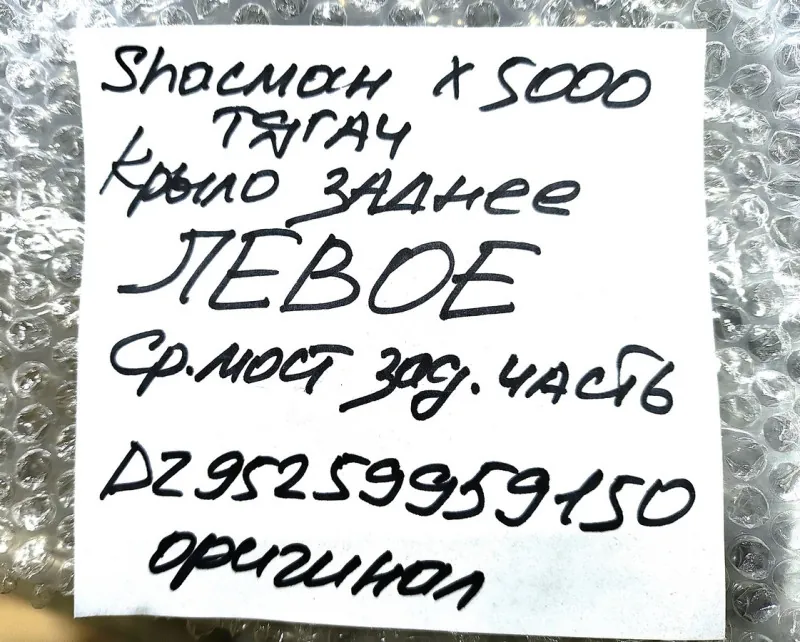 Shacман X 5000
ТЯГАЧ
Крыло ЗАДНее
ЛЕВОЕ
Ср.мост зад.часть
DZ95259959150
оригинал